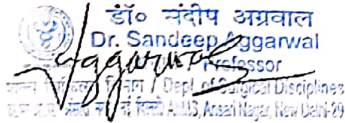 डॉ० संदीप अग्रवाल
Dr. Sandeep Aggarwal
Professor
विभाग / Dept. of Surgical Disciplines
नई दिल्ली AIIMS, Ansari Nagar, New Delhi-29